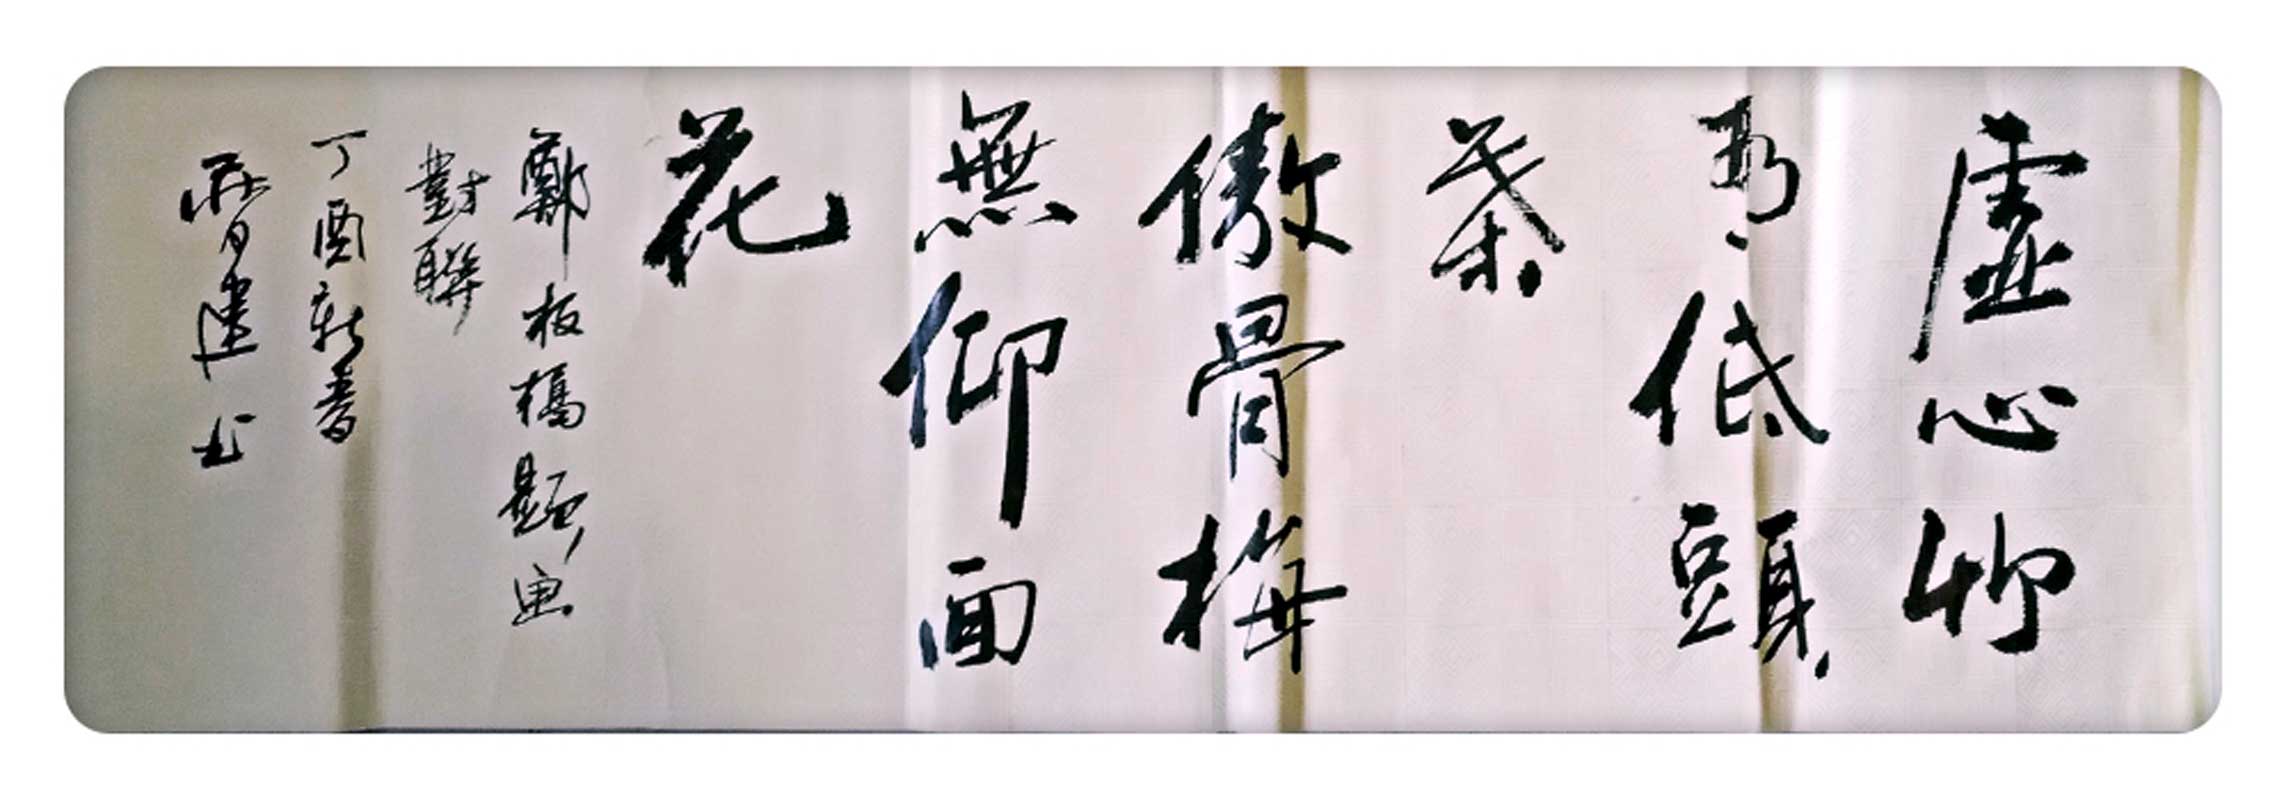 虚心竹
有低頭
葉
傲骨梅
無仰面
花
鄭板橋題画
對聯
丁酉新春
建书